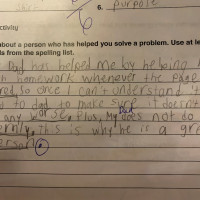 6. purpose
ctivity
about a person who has helped you solve a problem. Use at le
ds from the spelling list.
Dad has helped me by helping
homework whenever the page
red so once I can't understand it
to dad to make sure it doesn't
any worse. Plus, My Dad does not do
this is why he is a gre
erson.